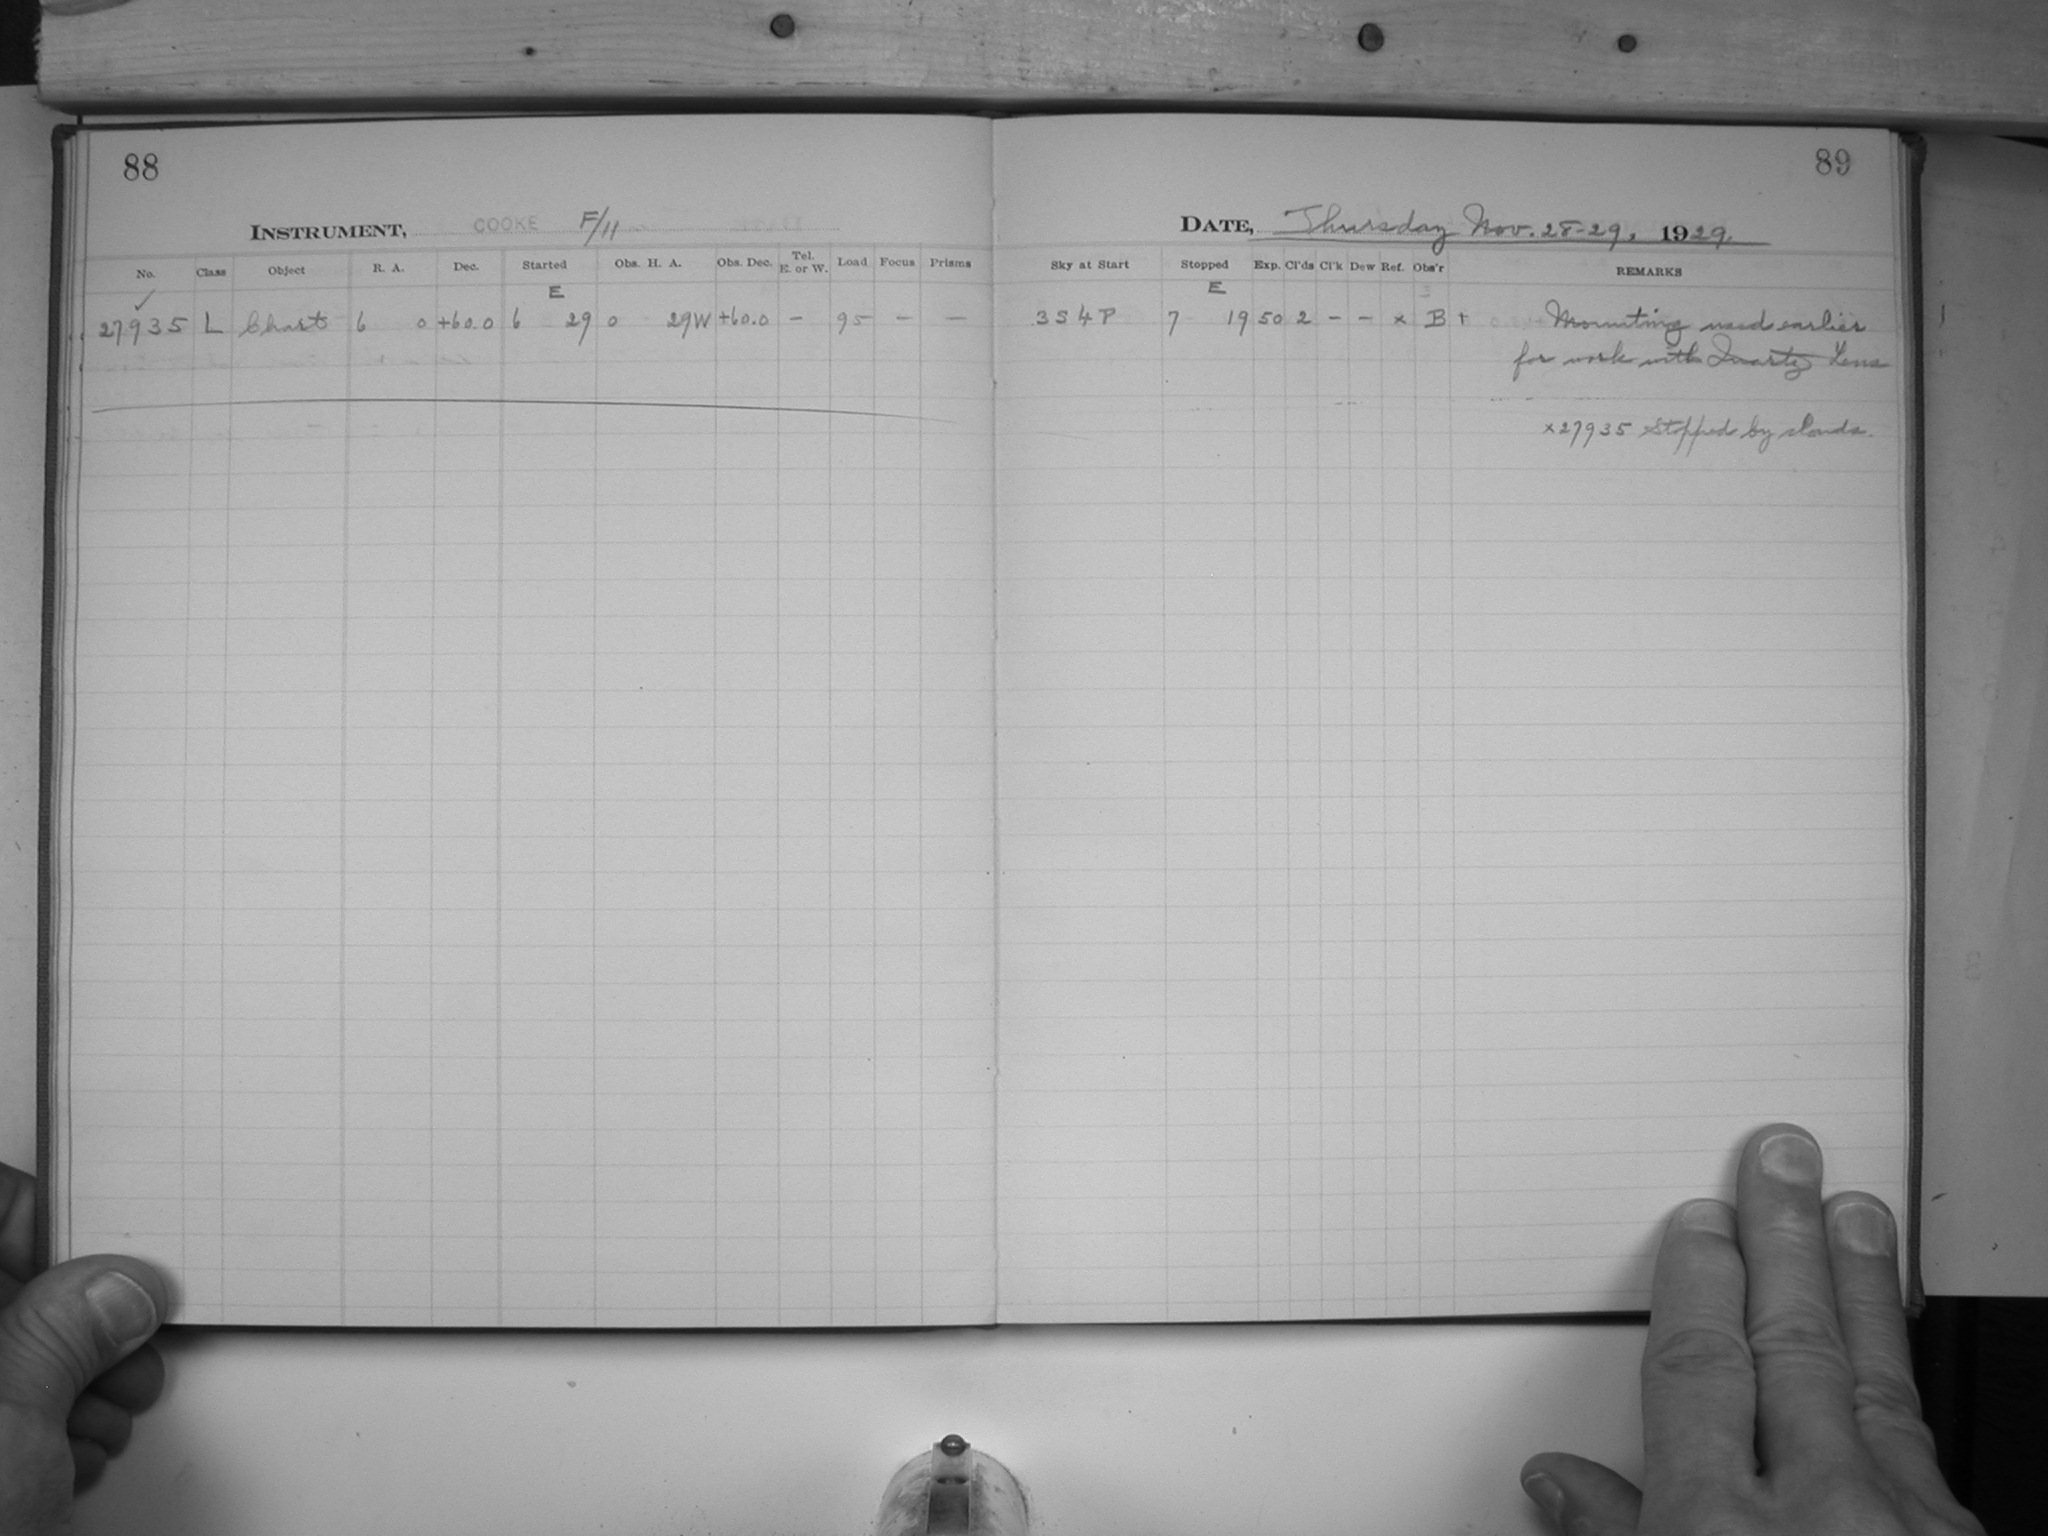 88
INSTRUMENT, COOKE F/11
No. Class Object R. A. Dec. Started Obs. H. A. Obs. Dec. Tel. E. or W. Load Focus Prisms
E
✓
27935 L Chart 6 0 +60.0 6 29 0 29W +60.0 – 95 – –
89
DATE, Thursday Nov. 28-29, 1929.
Sky at Start Stopped Exp. Cl'ds Cl'k Dew Ref. Obs'r REMARKS
E
3S4P 7 19 50 2 – – x B + Mounting used earlier
for work with Quartz Lens
x27935 Stopped by clouds.